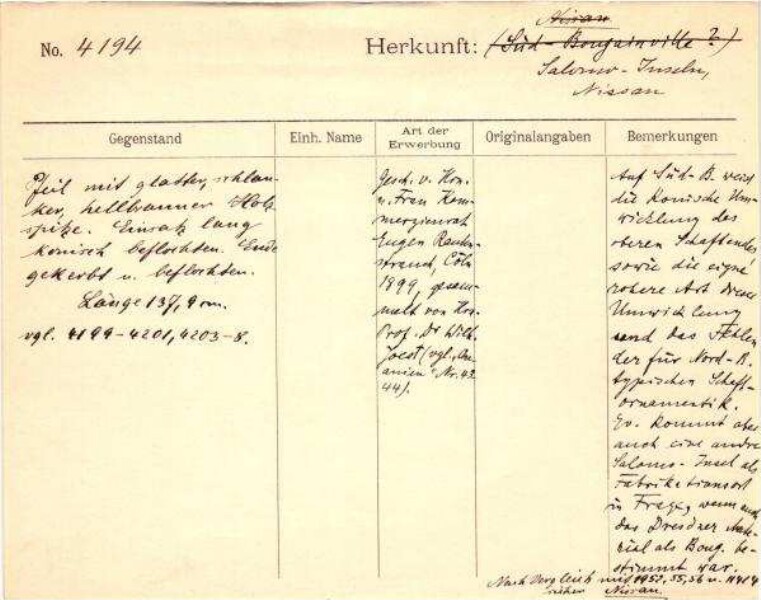 Nissan
No. 4194
Herkunft: (Süd-Bougainville?)
Salomo-Inseln,
Nissan
Gegenstand
Einh. Name
Art der Erwerbung
Originalangaben
Bemerkungen
Pfeil mit glatter, schlan-
ker, hellbrauner Holz
spitze. Einsatz lang
konisch beflochten. Ende
gekerbt u. beflochten.
Länge 137,9 cm.
vgl. 4199-4201, 4203-8.
Gesch. v. Hrn.
u. Frau Kom-
merzienrat
Eugen Rauten-
strauch, Cöln
1899, gesam-
melt von Hrn.
Prof. Dr Wilh.
Joest (vgl.
Nr. 43
44).
Auf Süd-B. weist
die konische Um-
wicklung des
oberen Schaftendes
sowie die
rohere Art dieser
Umwicklung
und das Fehlen
der für Nord-B.
typischen Schaft-
ornamentik.
Ev. kommt aber
auch eine andre
Salomo-Insel als
Fabrikationsort
in Frage, wenn auch
das Dresdner Mate-
rial als Boug. be-
stimmt war.
Nach Vergleich mit 1952, 55, 56 u. 11414
Nissan.